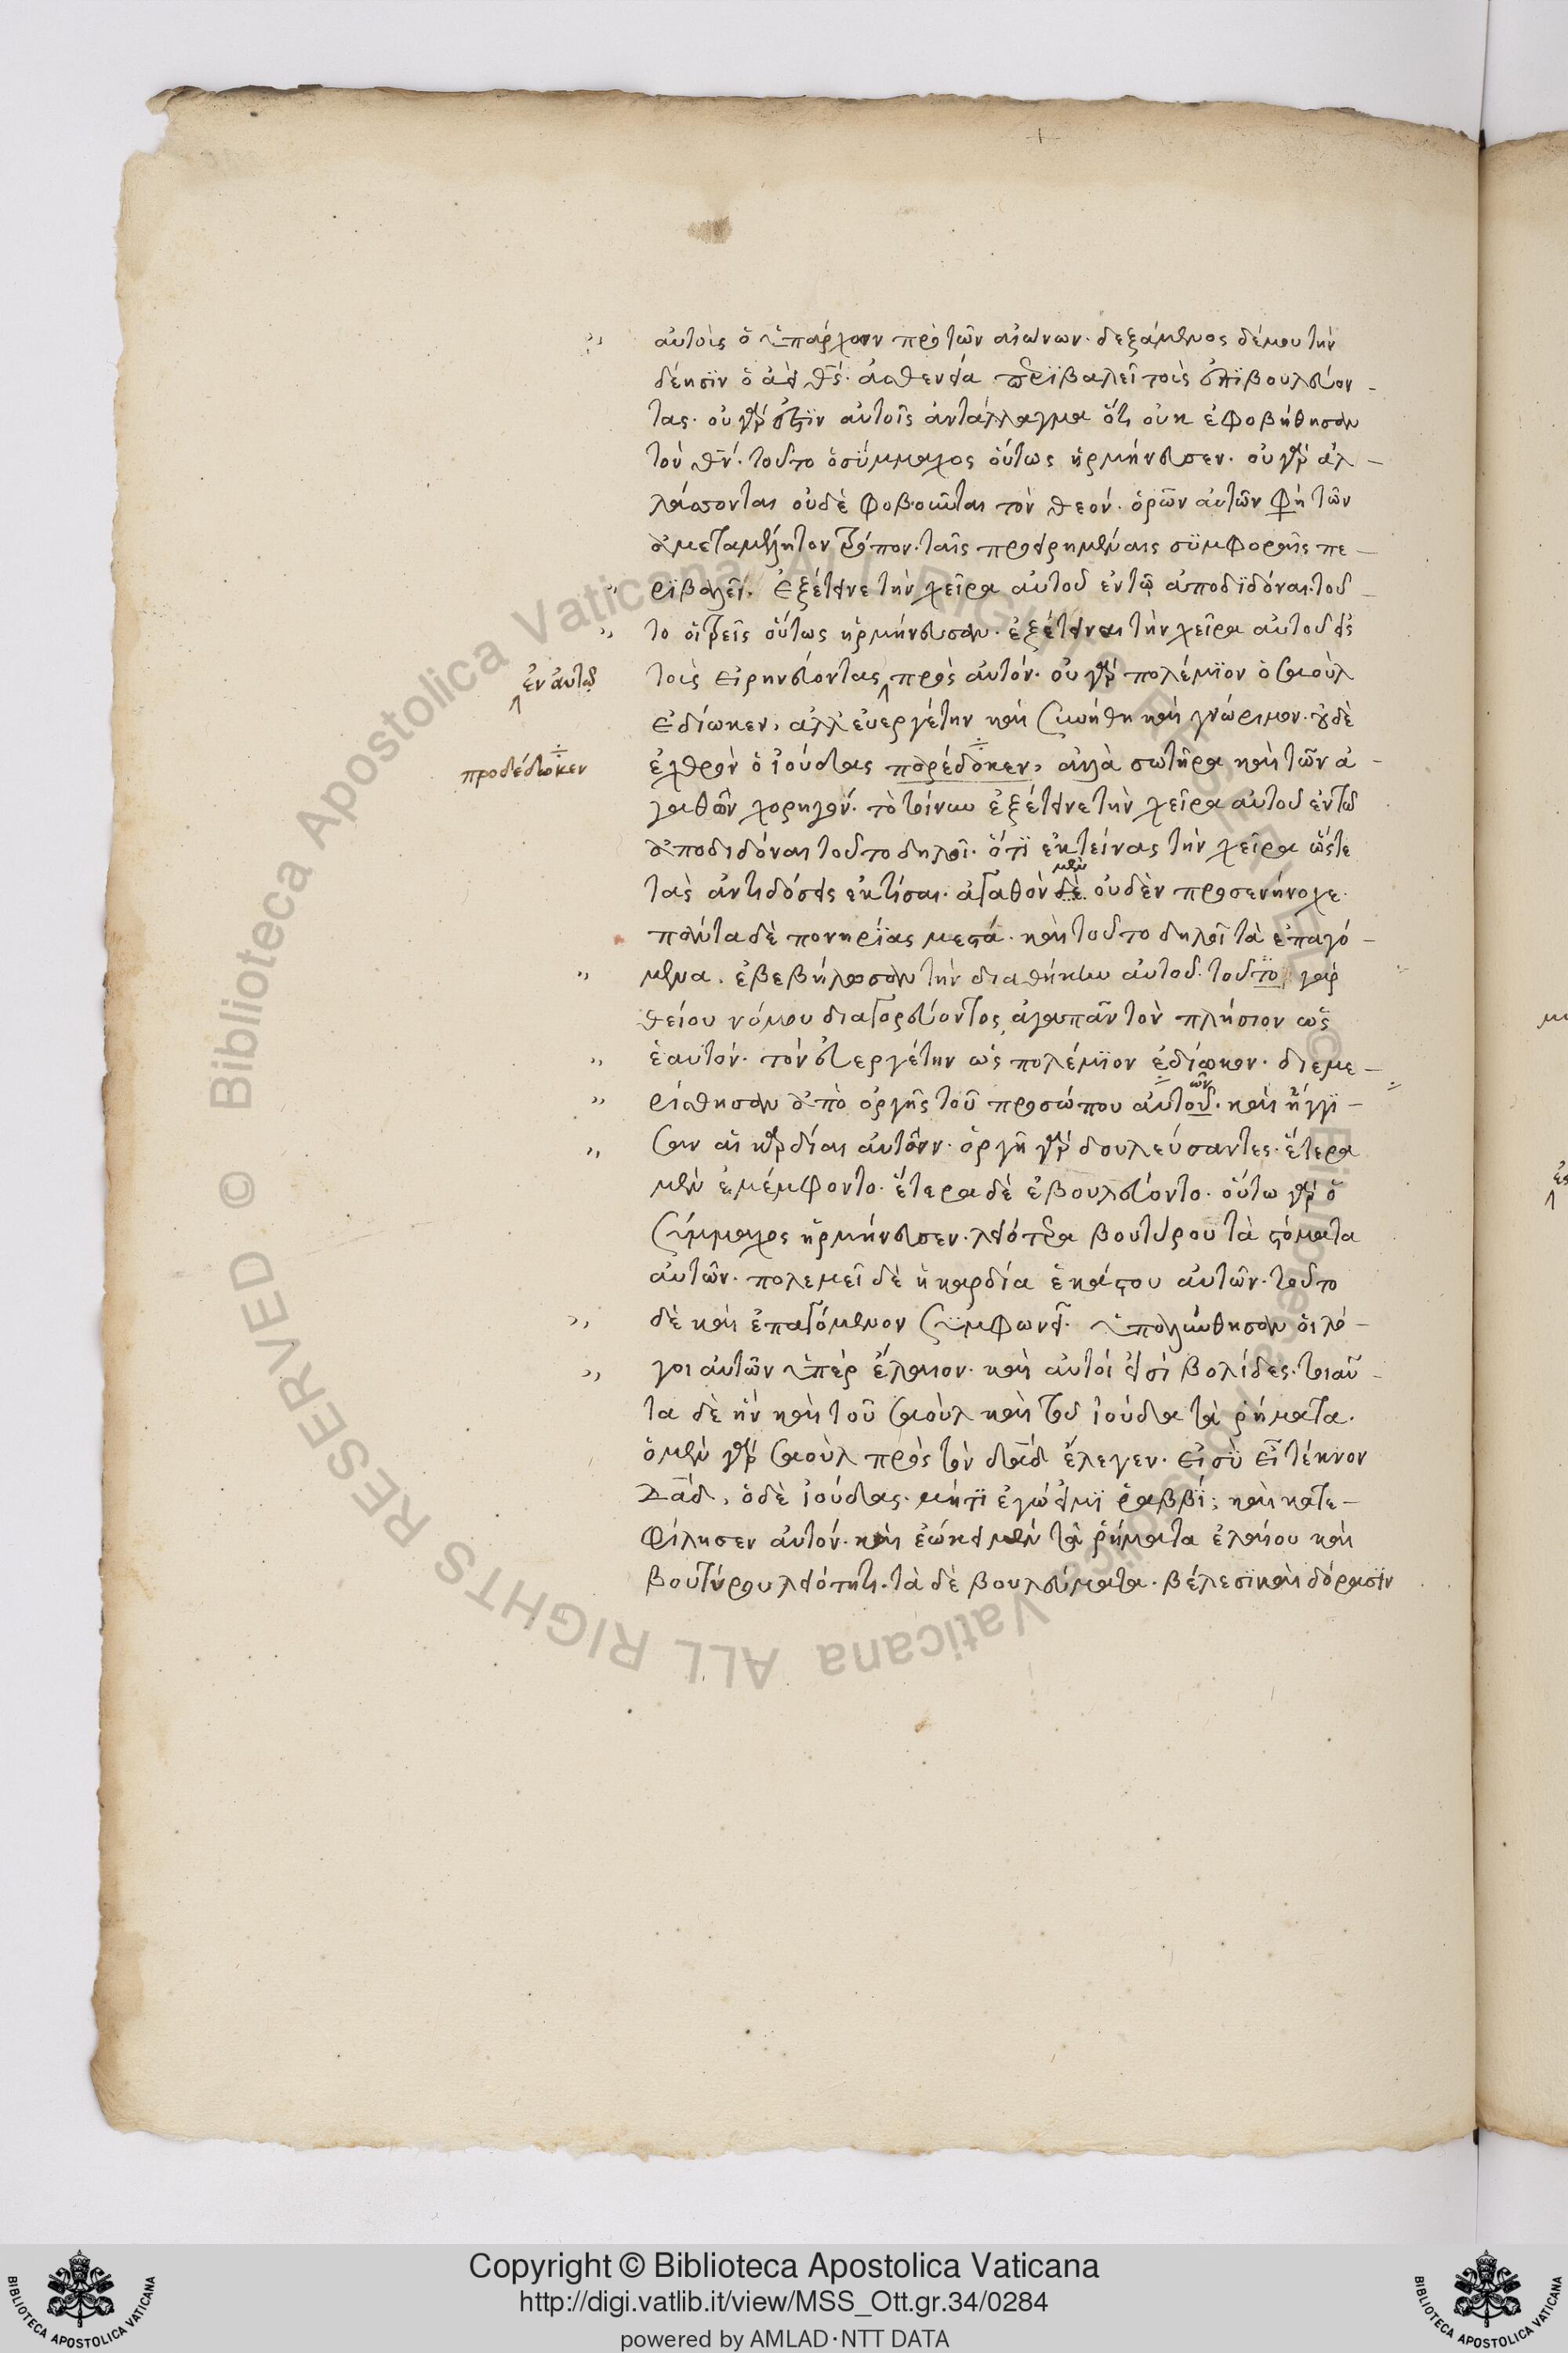 αὐτοὺς ὁ ὑπάρχων πρὸ τῶν αἰώνων. δεξάμενος δέ μου τὴν
δέησϊν ὁ ἀεὶ θς. ἀσθενεία περϊβαλεῖ τοὺς ἐπϊβουλεύον-
τας. οὐ γάρ ἐστϊν αὐτοῖς ἀντάλλαγμα ὅτι οὐκ ἐφοβήθησαν
τὸν θν. τοῦτο ὁ σύμμαχος οὕτως ἡρμήνευσεν. οὐ γὰρ ἀλ-
λάσσονται οὐδὲ φοβοῦνται τὸν θεόν. ὁρῶν αὐτῶν φη τῶν
ἀμεταμέλητον τρόπον. ταῖς προειρημέναις σϋμφοραῖς πε-
ρϊβαλεῖ. ἐξέτεινε τὴν χεῖρα αὐτοῦ ἐν τῷ ἀποδϊδόναι. τοῦ-
το οἱ τρεῖς οὕτως ἡρμήνευσαν. ἐξέτειναν τὴν χεῖρα αὐτοῦ εἰς
ἐν αὐτῷ
τοὺς εἰρηνεύοντας πρὸς αὐτόν. οὐ γὰρ πολέμϊον ὁ σαοὺλ
ἐδίωκεν, ἀλλ' εὐεργέτην καὶ συνήθη καὶ γνώριμον. οὐδὲ
προδέδωκεν
ἐχθρὸν ὁ ἰούδας παρέδοκεν, ἀλλὰ σωτῆρα καὶ τῶν ἀ-
γαθῶν χορηγόν. τὸ τοίνυν ἐξέτεινε τὴν χεῖρα αὐτοῦ ἐν τῶ
ἀποδιδόναι τοῦτο δηλοῖ. ὅτϊ ἐκτείνας τὴν χεῖρα ὥστε
τὰς ἀντιδόσεις ἐκτίσαι. ἀγαθὸν δὲ μὲν οὐδὲν προσενήνοχε.
πάντα δὲ πονηρίας μεστά. καὶ τοῦτο δηλοῖ τὰ ἐπαγό-
μενα. ἐβεβήλωσαν τὴν διαθήκην αὐτοῦ. τοῦτο γὰρ
θείου νόμου διαγορεύοντος ἀγαπᾶν τὸν πλήσιον ὡς
ἑαυτόν. τὸν εὐεργέτην ὡς πολέμϊον ἐδίωκον. διεμε-
ρίσθησαν ἀπὸ ὀργῆς τοῦ προσώπου αὐτοῦ ῶν. καὶ ἤγγϊ-
σαν αἱ καρδίαι αὐτῶν. ὀργῆ γὰρ δουλεύσαντες. ἕτερα
μὲν ἐμέμφοντο. ἕτερα δὲ ἐβουλεύοντο. οὕτω γὰρ ὁ
σύμμαχος ἡρμήνευσεν. λειότερα βουτύρου τὰ στόματα
αὐτῶν. πολεμεῖ δὲ ἡ καρδία ἑκάστου αὐτῶν. τοῦτο
δὲ καὶ ἐπαγόμενον συμφωνεῖ. ὑπαλύνθησαν οἱ λό-
γοι αὐτῶν ὑπὲρ ἔλαιον. καὶ αὐτοί εἰσϊ βολίδες. τοιαῦ-
τα δὲ ἦν καὶ τοῦ σαοὺλ καὶ τοῦ ἰούδα τὰ ῥήματα.
ὁ μὲν γὰρ σαοὺλ πρὸς τὸν δαδ ἔλεγεν. εἰ σὺ εἶ τέκνον
δαδ, ὁ δὲ ἰούδας. μήτϊ ἐγώ εἰμϊ ῥαββί; καὶ κατε-
φίλησεν αὐτόν. καὶ ἐώκει μὲν τὰ ῥήματα ἐλαίου καὶ
βουτύρου λειότητι. τὰ δὲ βουλεύματα. βέλεσϊ καὶ δόρασϊν
Copyright © Biblioteca Apostolica Vaticana
http://digi.vatlib.it/view/MSS_Ott.gr.34/0284
powered by AMLAD·NTT DATA